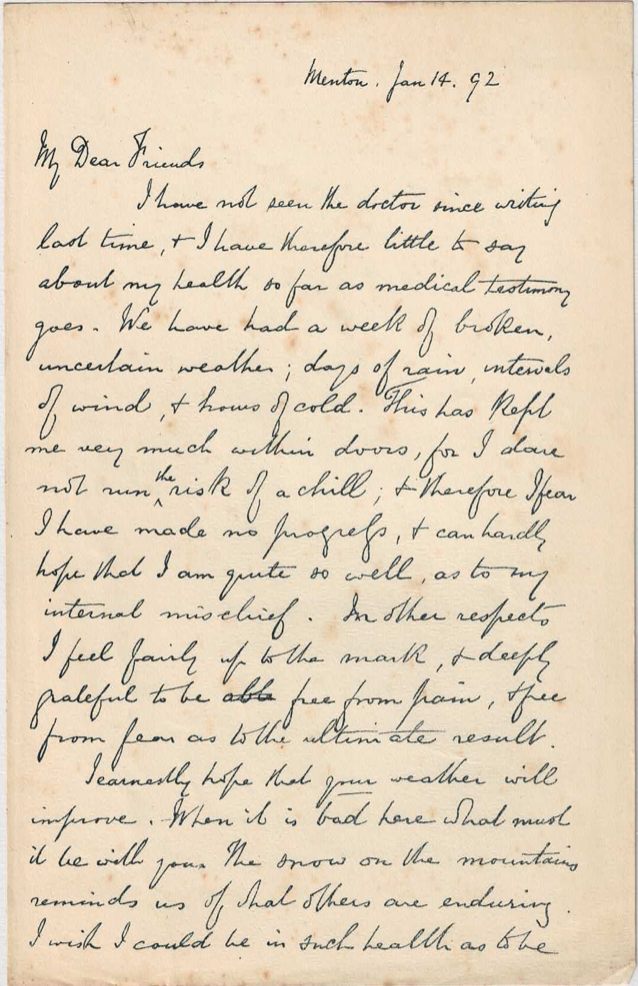 Menton. Jan 14. 92
My Dear Friends
I have not seen the doctor since writing
last time, & I have therefore little to say
about my health so far as medical testimony
goes. We have had a week of broken,
uncertain weather; days of rain, intervals
of wind, & hours of cold. This has kept
me very much within doors, for I dare
not run the risk of a chill; & therefore I fear
I have made no progress, & can hardly
hope that I am quite so well, as to my
internal mischief. In other respects
I feel fairly up to the mark, & deeply
grateful to be able free from pain, & free
from fear as to the ultimate result.
I earnestly hope that your weather will
improve. When it is bad here what must
it be with you. The snow on the mountains
reminds us of what others are enduring.
I wish I could be in such health as to be